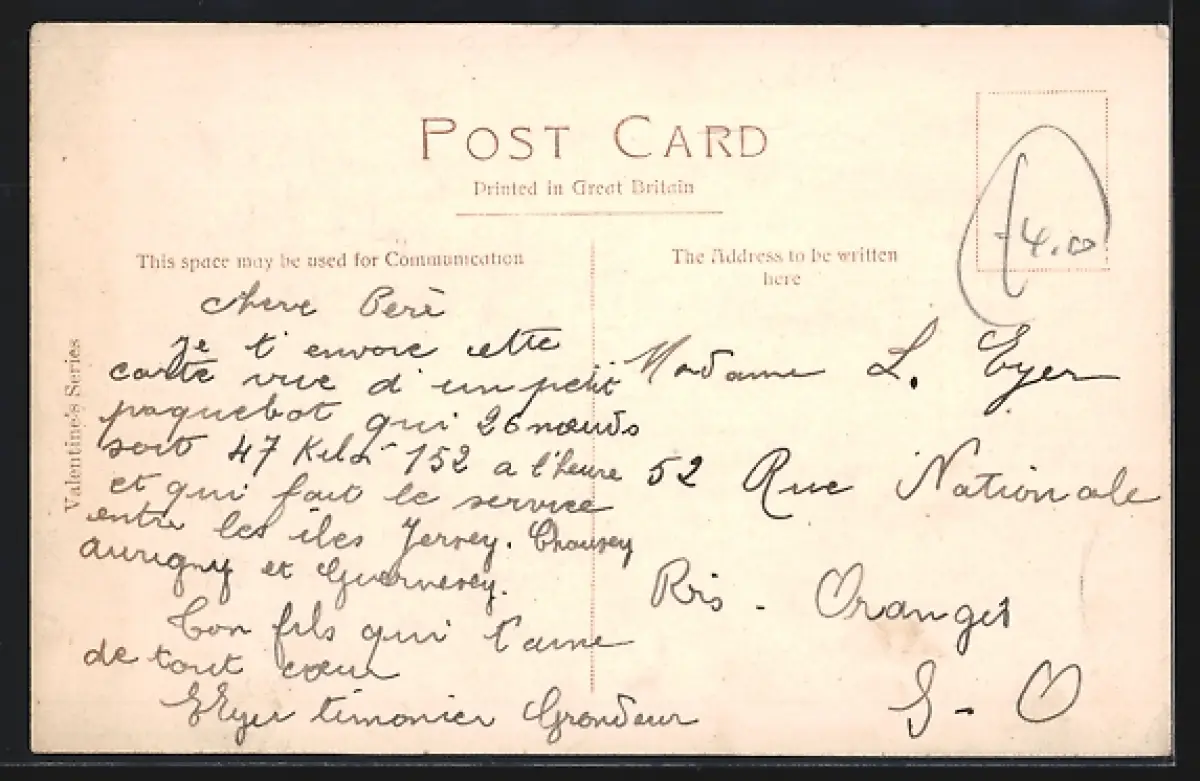 POST CARD
Printed in Great Britain
This space may be used for Communication
The Address to be written
here
£4.00
Valentine's Series
Chere Perè
Je t'envoie cette
carte vue d'un petit
paquebot qui 26 nœuds
soit 47 Kilo 152 a l'heure
et qui fait le service
entre les iles Jersey. Chausey
aurigny et Guernesey.
Ton fils qui t'aime
de tout cœur
Eyer timonier Grondeur
Madame L. Eyer
52 Rue Nationale
Ris - Orangis
S - O